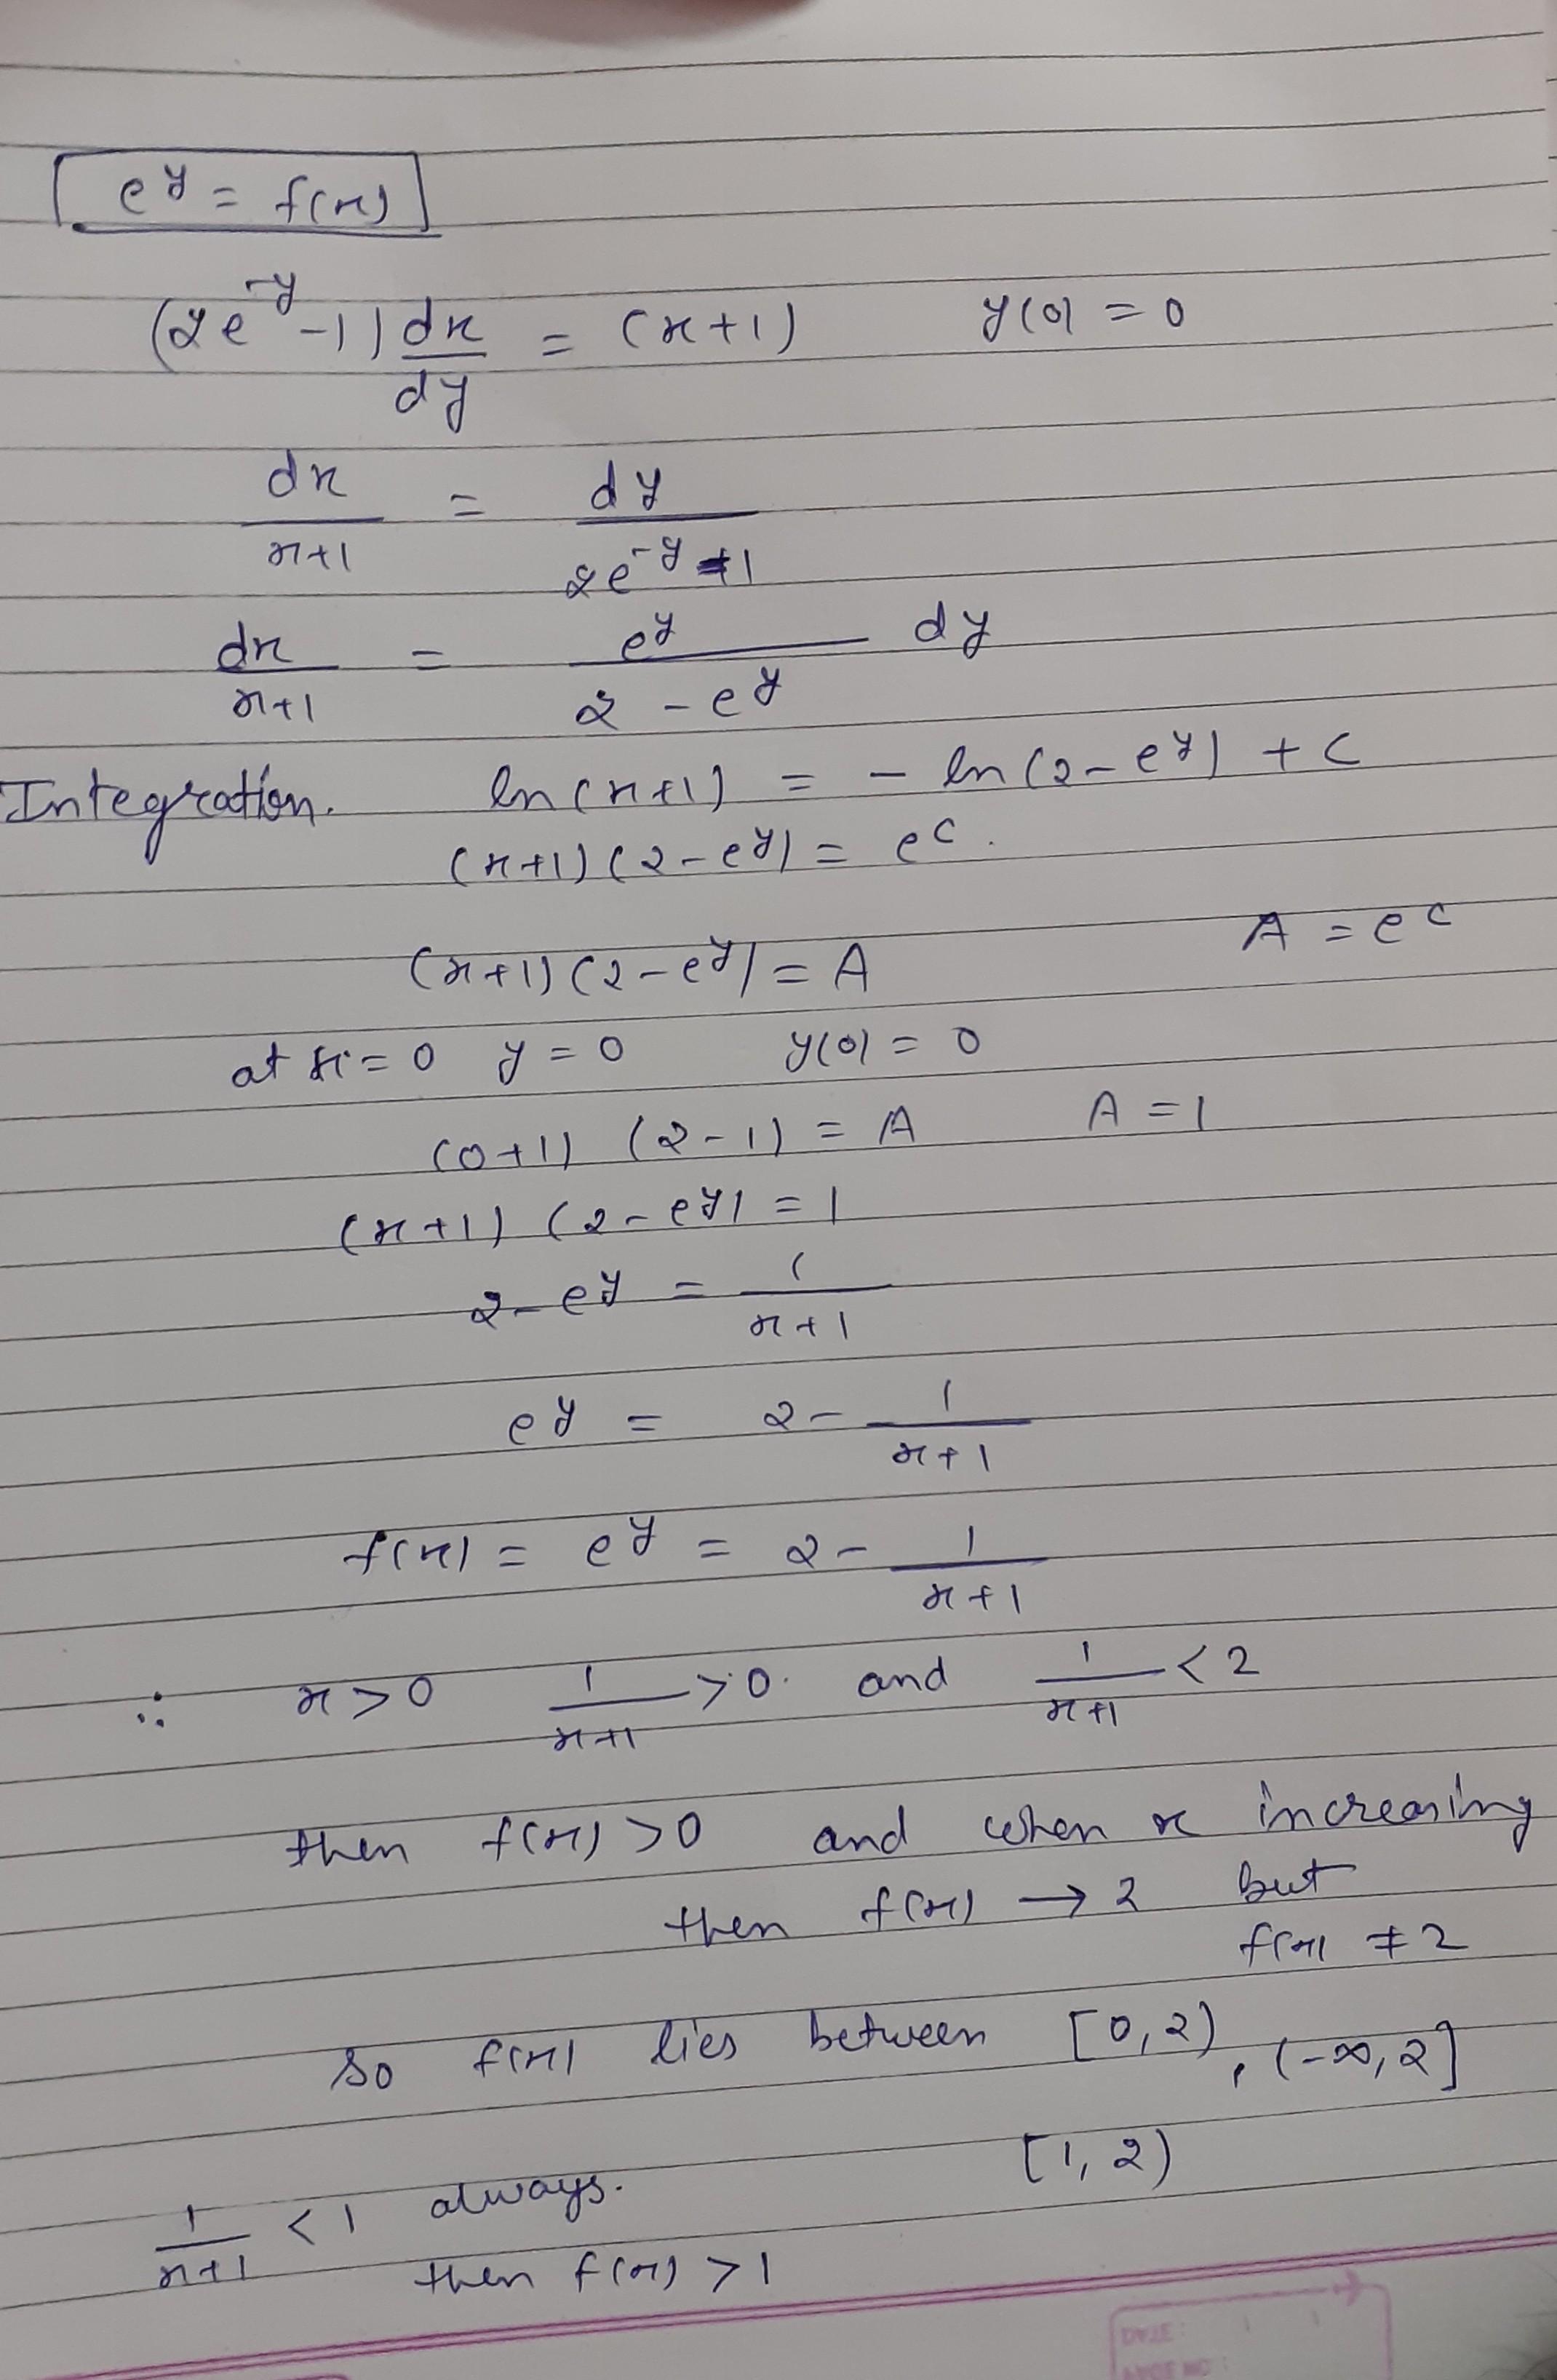 e^y = f(x)
(2e^-y - 1) dx/dy = (x+1) y(0) = 0
dx/x+1 = dy/2e^-y - 1
dx/x+1 = e^y/2 - e^y dy
Integration. ln(x+1) = - ln(2 - e^y) + C
(x+1)(2 - e^y) = e^c.
A = e^c
(x+1)(2 - e^y) = A
at x = 0 y = 0 y(0) = 0
(0+1) (2-1) = A A = 1
(x+1) (2 - e^y) = 1
2 - e^y = 1/x+1
e^y = 2 - 1/x+1
f(x) = e^y = 2 - 1/x+1
∵ x > 0 1/x+1 > 0. and 1/x+1 < 2
then f(x) > 0 and when x increasing
then f(x) → 2 but
f(x) ≠ 2
so f(x) lies between [0, 2), (-∞, 2]
[1, 2)
1/x+1 < 1 always.
then f(x) > 1
DATE :
PAGE NO :